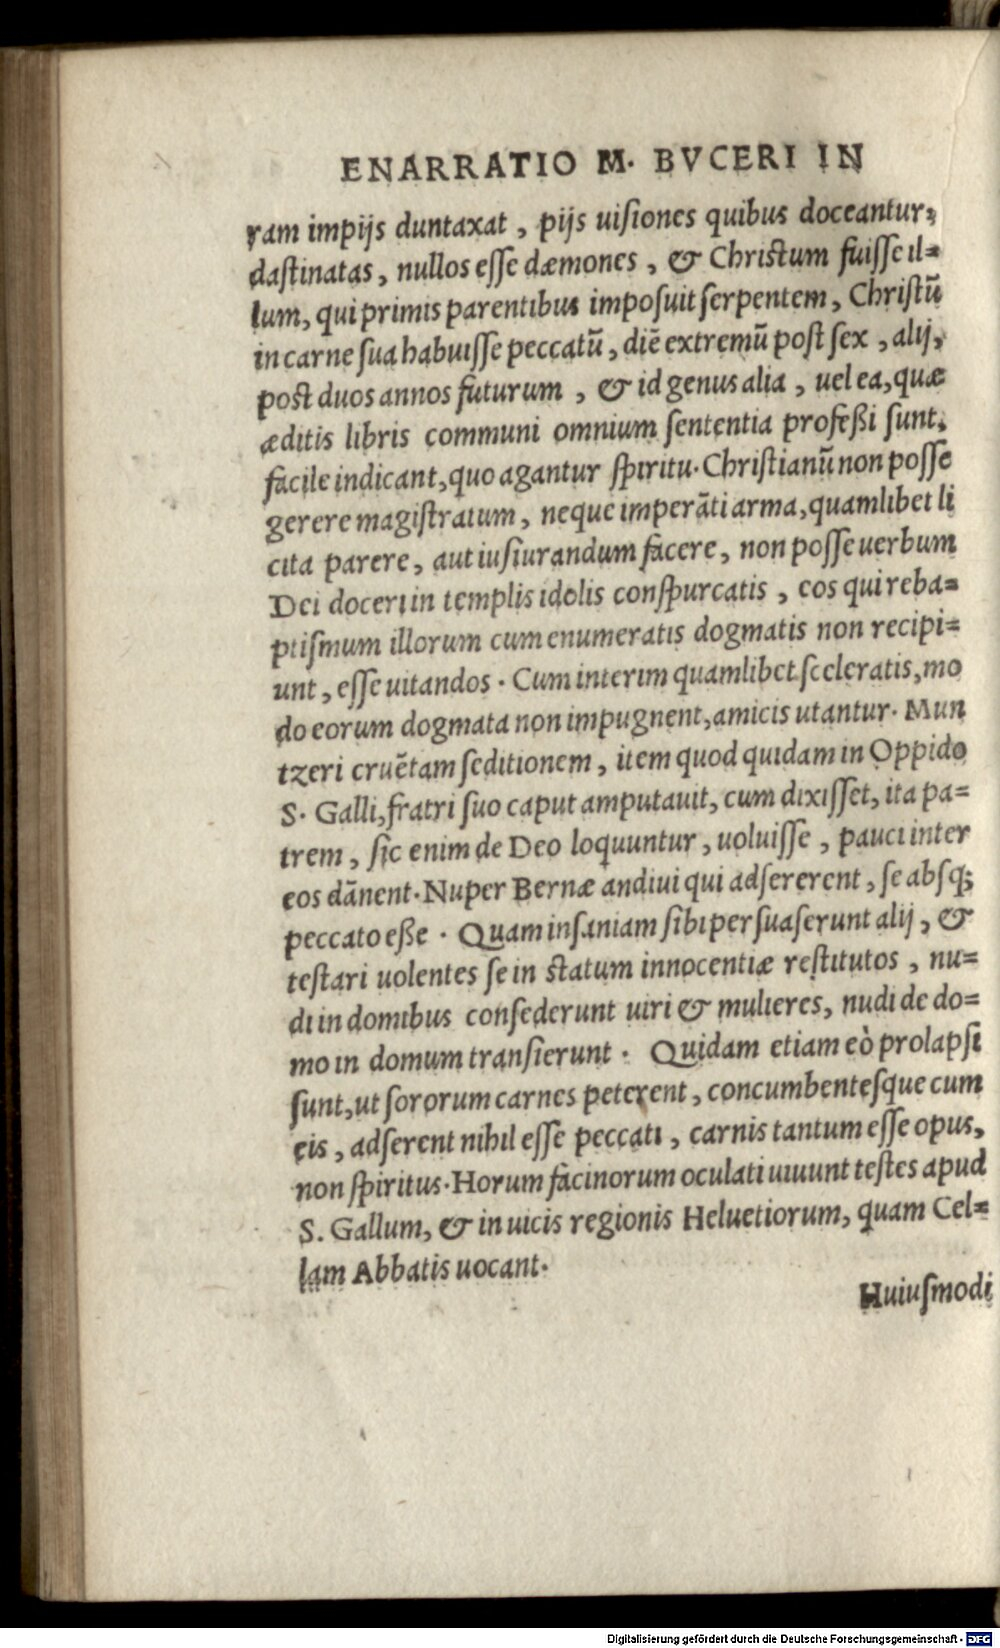 ENARRATIO M. BVCERI IN
ram impijs duntaxat, pijs uiſiones quibus doceantur,
daſtinatas, nullos eſſe dæmones, & Chriſtum fuiſſe il=
lum, qui primis parentibus impoſuit ſerpentem, Chriſtũ
in carne ſua habuiſſe peccatũ, diẽ extremũ poſt ſex, alij,
poſt duos annos futurum, & id genus alia, uel ea, quæ
æditis libris communi omnium ſententia profeßi ſunt,
facile indicant, quo agantur ſpiritu. Chriſtianũ non poſſe
gerere magiſtratum, neque imperãti arma, quamlibet li
cita parere, aut iuſiurandum facere, non poſſe uerbum
Dei doceri in templis idolis conſpurcatis, eos qui reba=
ptiſmum illorum cum enumeratis dogmatis non recipi=
unt, eſſe uitandos. Cum interim quamlibet ſceleratis, mo
do eorum dogmata non impugnent, amicis utantur. Mun
tzeri cruẽtam ſeditionem, item quod quidam in Oppido
S. Galli, fratri ſuo caput amputauit, cum dixiſſet, ita pa=
trem, ſic enim de Deo loquuntur, uoluiſſe, pauci inter
eos dãnent. Nuper Bernæ andiui qui adſererent, ſe abſq;
peccato eße. Quam inſaniam ſibi perſuaſerunt alij, &
teſtari uolentes ſe in ſtatum innocentiæ reſtitutos, nu=
di in domibus conſederunt uiri & mulieres, nudi de do=
mo in domum tranſierunt. Quidam etiam eò prolapſi
ſunt, ut ſororum carnes peterent, concumbenteſque cum
eis, adſerent nihil eſſe peccati, carnis tantum eſſe opus,
non ſpiritus. Horum facinorum oculati uiuunt teſtes apud
S. Gallum, & in uicis regionis Heluetiorum, quam Cel=
lam Abbatis uocant.
Huiuſmodi
Digitalisierung gefördert durch die Deutsche Forschungsgemeinschaft - DFG